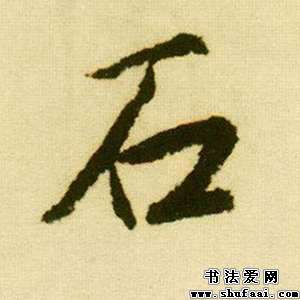 石
书法爱网
www.shufaai.com